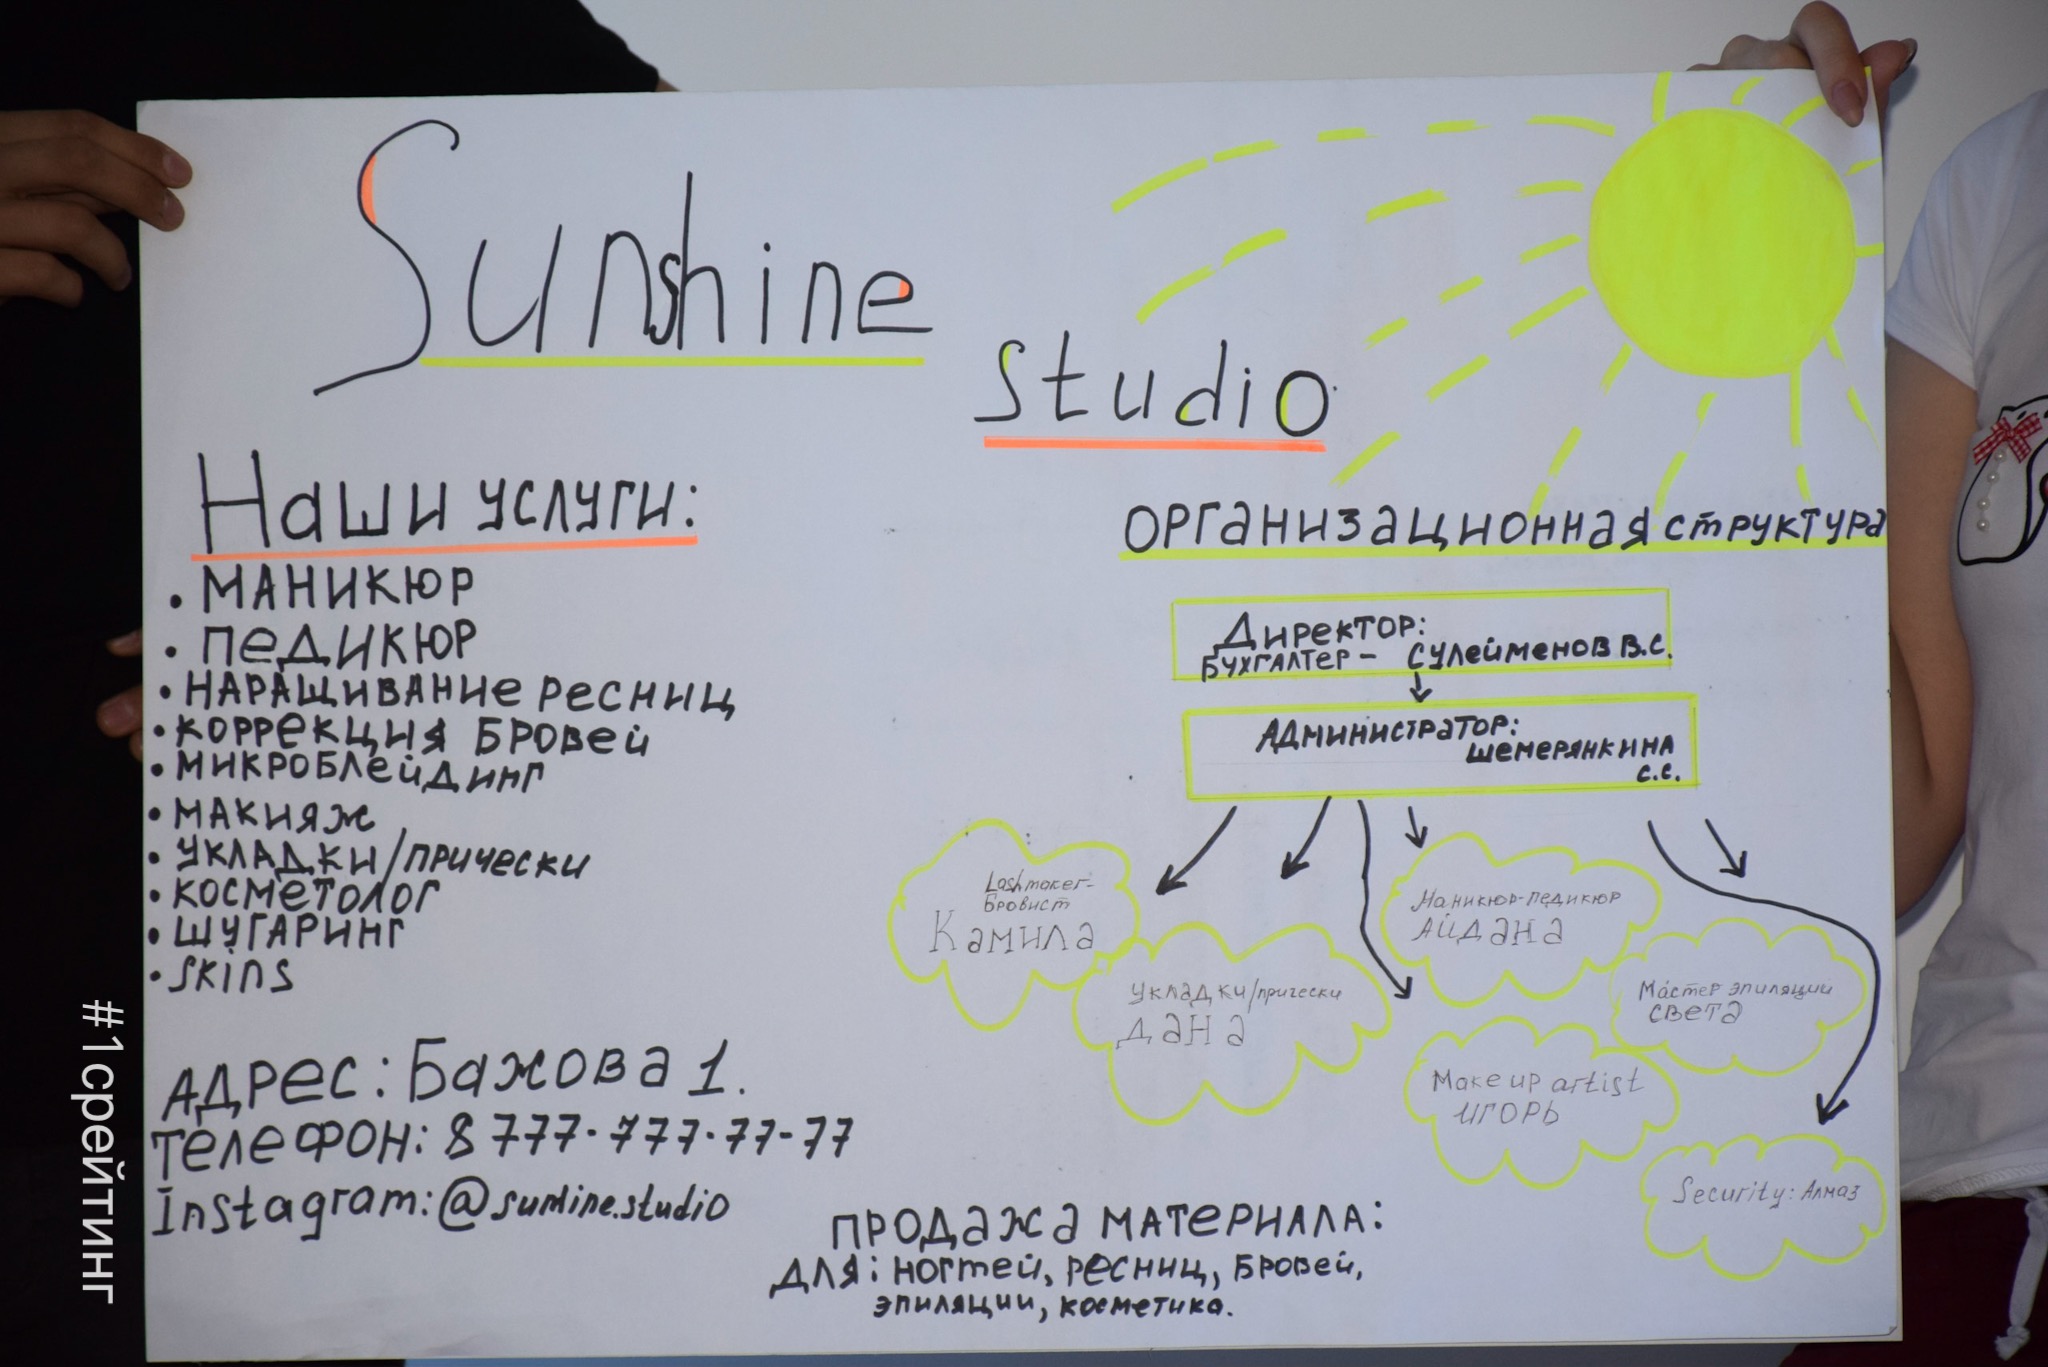 Sunshine
studio
Наши услуги:
• МАНИКЮР
• ПЕДИКЮР
• НАРАЩИВАНИЕ РЕСНИЦ
• КОРРЕКЦИЯ БРОВЕЙ
• МИКРОБЛЕЙДИНГ
• МАКИЯЖ
• УКЛАДКИ/ПРИЧЕСКИ
• КОСМЕТОЛОГ
• ШУГАРИНГ
• SKINS
АДРЕС: Бажова 1.
ТЕЛЕФОН: 8 777-777-77-77
Instagram: @sunhine.studio
ОРГАНИЗАЦИОННАЯ СТРУКТУРА
ДИРЕКТОР:
БУХГАЛТЕР - СУЛЕЙМЕНОВ В.С.
АДМИНИСТРАТОР:
ШЕМЕРЯНКИНА
С.С.
Lashmaker-
Бровист
Камила
Укладки/прически
Дана
Маникюр-педикюр
АЙДАНА
Мастер эпиляции
СВЕТА
Make up artist
ИГОРЬ
Security: Алмаз
ПРОДАЖА МАТЕРИАЛА:
ДЛЯ: НОГТЕЙ, РЕСНИЦ, БРОВЕЙ,
ЭПИЛЯЦИИ, КОСМЕТИКА.
#1срейтинг